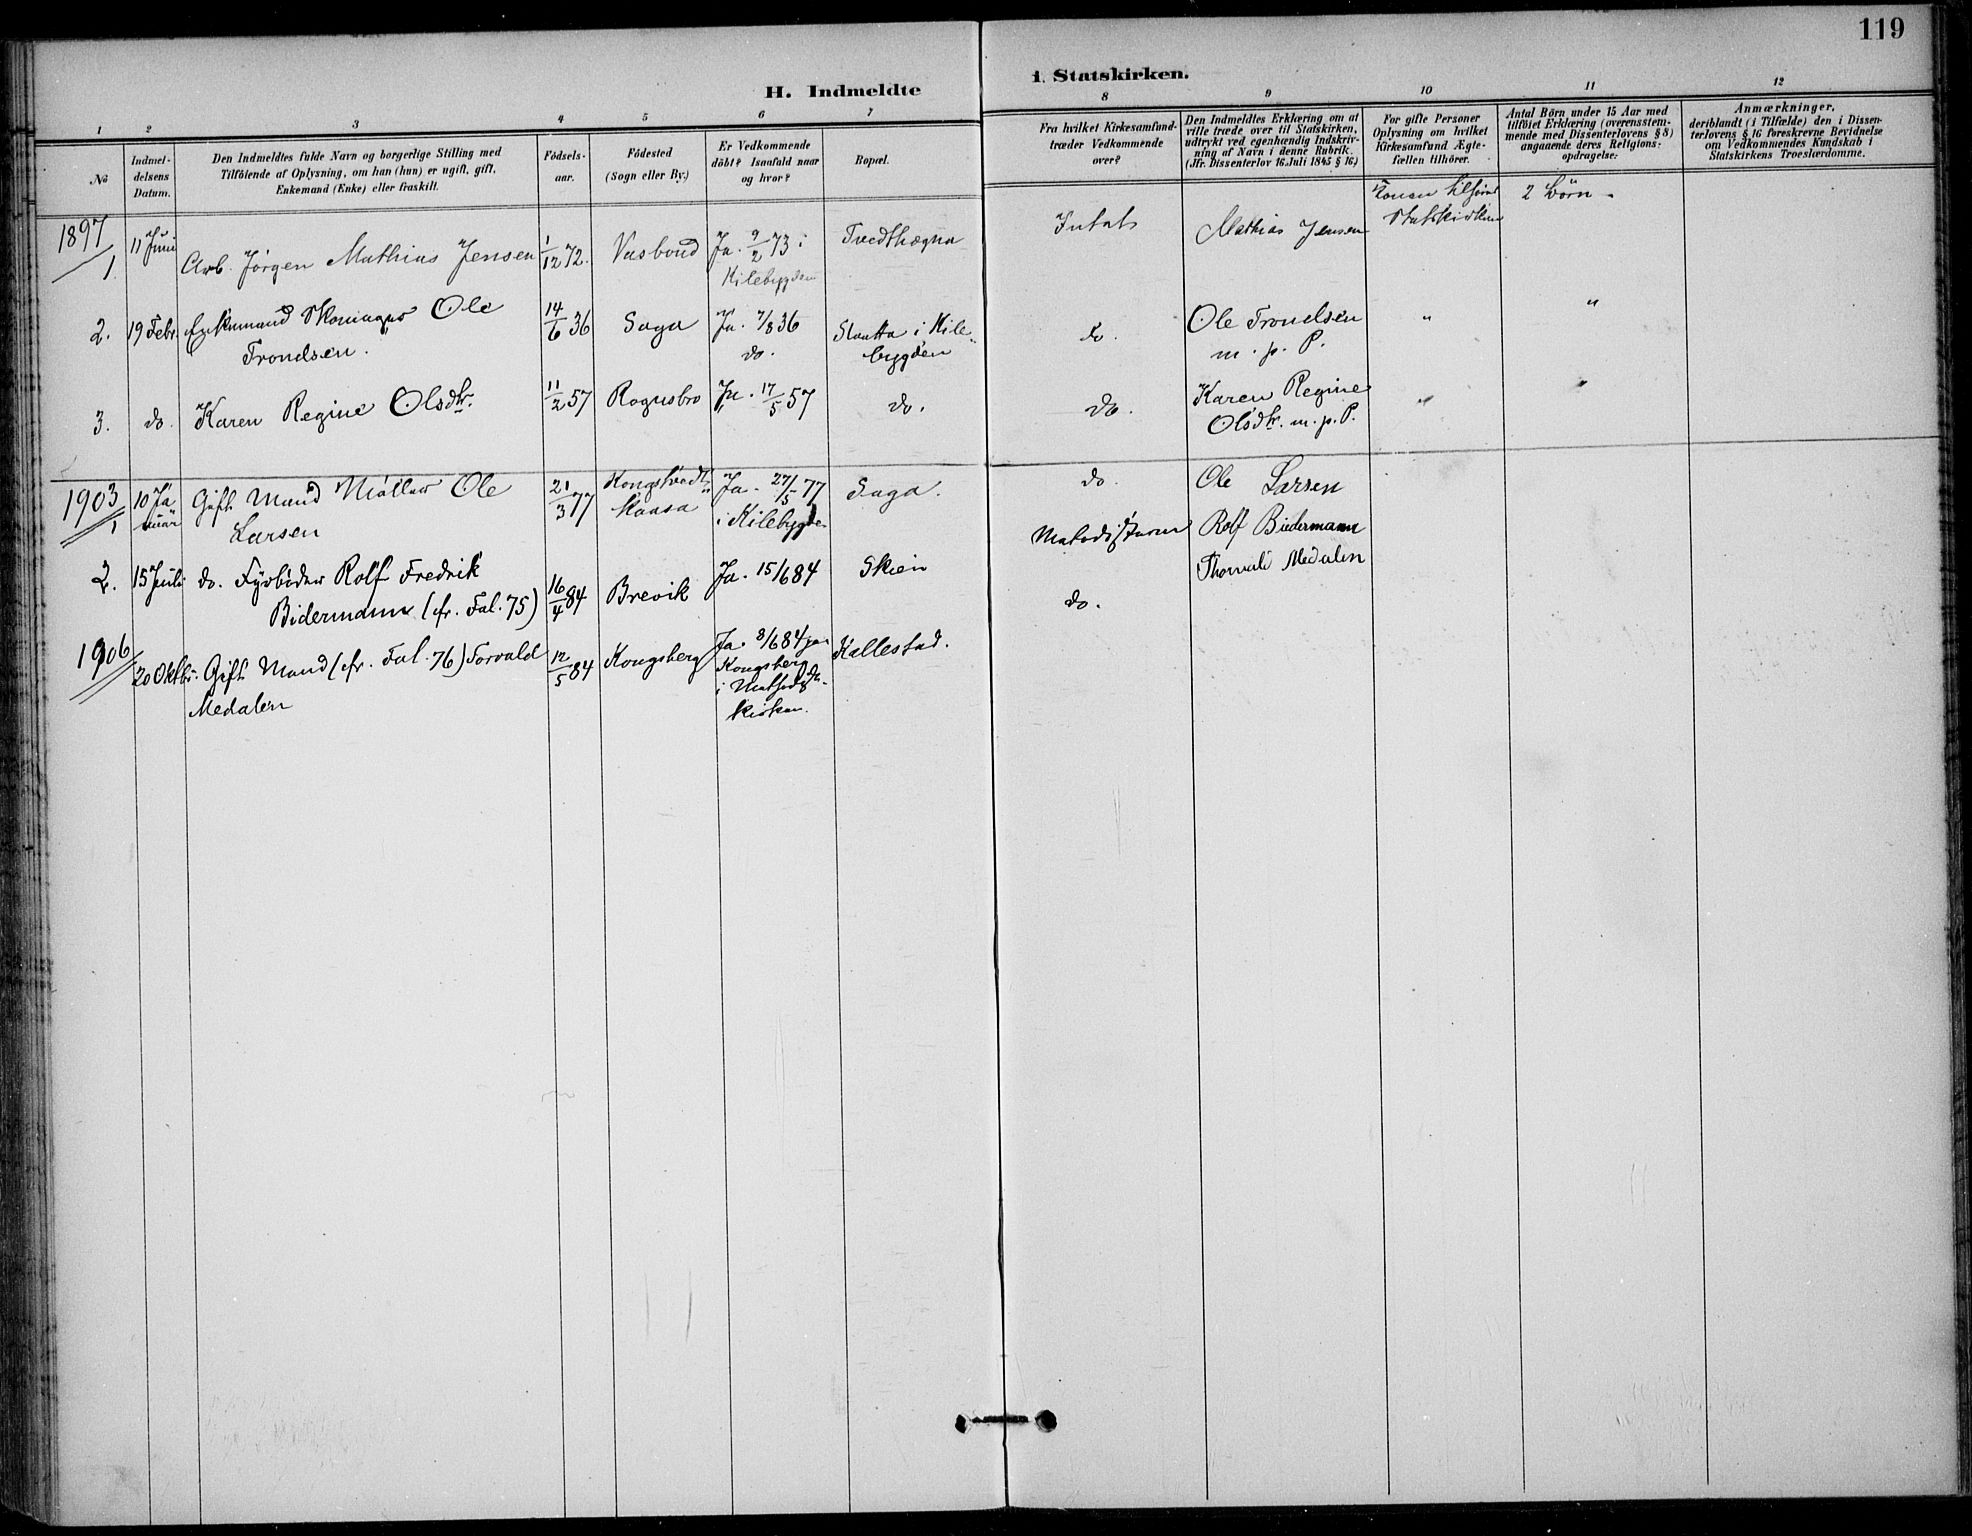 119
H. Indmeldte
i. Statskirken.
1 2 3 4 5 6 7 8 9 10 11 12
No
Indmel-
delsens
Datum.
Den Indmeldtes fulde Navn og borgerlige Stilling med
Tilföiende af Oplysning, om han (hun) er ugift, gift,
Enkemand (Enke) eller fraskilt.
Födsels-
aar.
Födested
(Sogn eller By.)
Er Vedkommende
döbt? Isaafald naar
og hvor?
Bopæl.
Fra hvilket Kirkesamfund-
træder Vedkommende
over?
Den Indmeldtes Erklæring om at
ville træde over til Statskirken,
udtrykt ved egenhændig Indskriv-
ning af Navn i denne Rubrik.
(Jfr. Dissenterlov 16 Juli 1845 § 16)
For gifte Personer
Oplysning om hvilket
Kirkesamfund Ægte-
fællen tilhörer.
Antal Börn under 15 Aar med
tilföiet Erklæring (overensstem-
mende med Dissenterlovens § 8)
angaaende deres Religions-
opdragelse:
Anmærkninger,
deriblandt (i Tilfælde) den i Dissen-
terlovens § 16 foreskrevne Bevidnelse
om Vedkommendes Kundskab i
Statskirkens Troeslærdomme.
1897
1. 11 Juni Arb. Jörgen Mathias Jensen 1/12 72. Vasbond Ja. 9/2 73 i
Kilebygden
Tvedthægna
Intet Mathias Jensen
Konen tilhörer
Statskirken
2 börn
2. 19 Febr. Enkemand Skomager Ole
Trondsen.
14/6 36 Saga Ja. 7/8 36
do.
Slaatta i Kile-
bygden
do.
Ole Trondsen
m. p. P.
" "
3. do. Karen Regine Olsdtr. 11/2 57 Rognsbro Ja. 17/5 57 do. do.
Karen Regine
Olsdtr. m. p. P.
" "
1903
1 10 Ja-
nuar
Gift Mand Möller Ole
Larsen
21/3 77
Ja. 27/5 77
i Kilebygden
Saga.
do. Ole Larsen
2. 15 Juli do. Fyrböder Rolf Fredrik
Bidermann (fr. Fol. 75)
16/4 84 Brevik Ja. 15/6 84 Skien
Rolf Biedermann
1906
20 Oktbr. Gift Mand (fr. Fol. 76) Torvald
Medalen
12/5 84 Kongsberg
Ja. 8/6 84 paa
Kongsberg
i Methodist-
kirken.
Kallestad.
do.
Thorvald Medalen